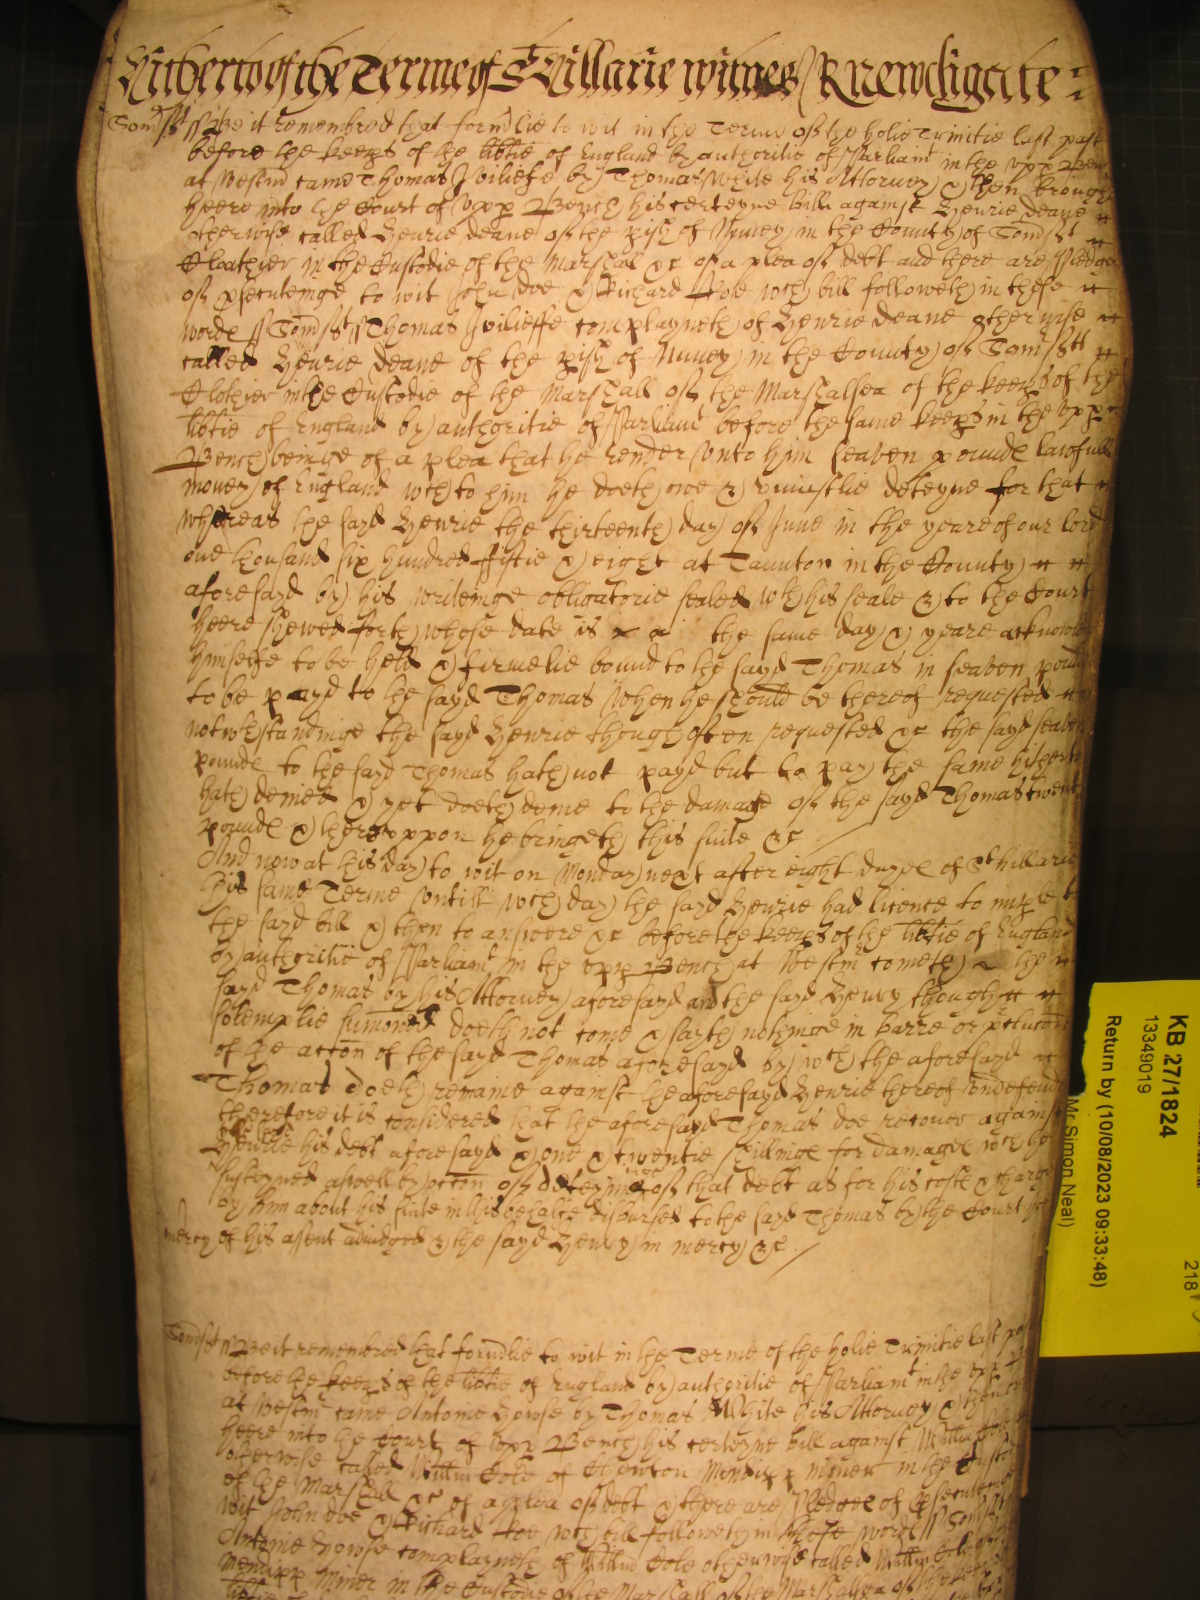 Hitherto of the Terme of St Hillarie witnes R Newdigate
Somst ss Be it remembred that formlie to wit in the Terme of the holie Trinitie last past
before the keeps of the libtie of England by authoritie of Parliamt in the vpp Bench
at Westm came Thomas Joiliefe by Thomas White his Attorney & then brought
heere into the Court of vpp Bench his certeyne bill against Henrie deane
otherwise called Henrie deane of the pish of Nuney in the County of Somst
Cloathier in the Custodie of the Marshall &c of a plea of debt and there are pledges
of psecuteinge to wit John doe & Richard Roe wch bill followeth in these
words ss Somst ss Thomas Joilieffe complayneth of Henrie deane otherwise
called Henrie deane of the pish of Nuney in the County of Somstt
Clothier in the Custodie of the Marshall of the Marshalsea of the keeps of the
libtie of England by authoritie of Parliamt before the same keeps in the vpp
Bench beinge of a plea that he render vnto him seaven pounds lawfull
money of England wch to him he doeth owe & vniustlie deteyne for that
whereas the sayd Henrie the thirteenth day of June in the yeare of our lord
one thousand six hundred fiftie & eight at Taunton in the County
aforesayd by his writeinge obligatorie sealed wth his seale & to the Court
heere shewed forth whose date is the same day & yeare acknowledged
himselfe to be held & firmelie bound to the sayd Thomas in seaven pounds
to be payd to the sayd Thomas when he should be thereof requested
notwthstandinge the sayd Henrie though often requested &c the sayd seaven
pounds to the sayd Thomas hath not payd but to pay the same hitherto
hath denied & yet doeth denie to the damage of the sayd Thomas twenty
pounds & therevppon he bringeth this suite &c
And now at this day to wit on Monday next after eight dayes of St hillarie
this same Terme vntill wch day the sayd Henrie had licence to imple to
the sayd bill & then to answere &c before the keeps of the libtie of England
by authoritie of Parliamt in the vpp Bench at Westmr cometh the
sayd Thomas by his Attorney aforesayd and the sayd Henry though
solemplie sumoned doeth not come & sayth nothinge in barre or pclucon
of the accon of the sayd Thomas aforesayd by wch the aforesayd
Thomas doeth remaine against the aforesayd Henrie thereof vndefended
therefore it is considered that the aforesayd Thomas doe recover against
Henrie his debt aforesayd & one & twentie shillings for damages wch he
susteyned aswell by occon of deteyninge of that debt as for his costs & charges
by him about his suite in this behalfe disbursed to the sayd Thomas by the Court
mercy of his assent adiudged & the sayd Henry in mercy &c
Somst ss Be it remembred that formlie to wit in the Terme of the holie Trinitie last past
before the keeps of the libtie of England by authoritie of Parliamt in the vpp
at Westmr came Antonie Howse by Thomas White his Attorney & then
heere into the Court of vpp Bench his certeyne bill against Willm Cole
otherwise called Willm Cole of Chewton Mendipp Miner in the Custodie
of the Marshall &c of a plea of debt & there are pledges of psecuteinge
wit John doe & Richard Roe wch bill followeth in these words ss Somst
Antonie Howse complayneth of Willm Cole otherwise called Willm Cole
Mendipp Miner in the Custodie of the Marshall of the Marshalsea of the
KB 27/1824
13349019
Return by (10/08/2023 09:33:48)
Mr Simon Neal)
218